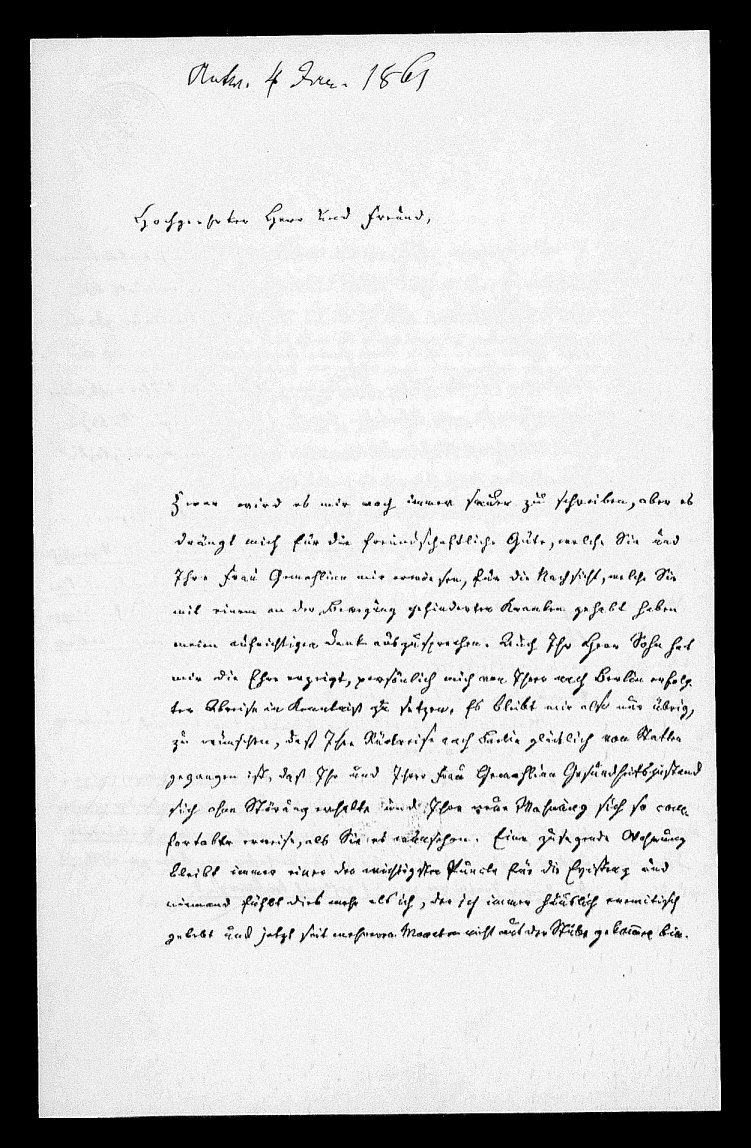 Antw. 4 Jan. 1861
Hochgeehrter Herr und Freund,
Zwar wird es mir noch immer sauer zu schreiben, aber es
drängt mich für die freundschaftliche Güte, welche Sie und
Ihre Frau Gemahlinn mir erwiesen, für die Nachsicht, welche Sie
mit einem an der Bewegung gehinderten Kranken gehabt haben
meinen aufrichtigen Dank auszusprechen. Auch Ihr Herr Sohn hat
mir die Ehre erzeigt, persönlich mich von Ihrer nach Berlin erfolg-
ten Abreise in Kenntniß zu setzen. Es bleibt mir also nur übrig,
zu wünschen, daß Ihre Rückreise nach Berlin glücklich von Statten
gegangen ist, daß Ihr und Ihrer Frau Gemahlinn Gesundheitszustand
sich ohne Störung erhalte und Ihre neue Wohnung sich so com-
fortable erweise, als Sie es wünschen. Eine zusagende Wohnung
bleibt immer einer der wichtigsten Puncte für die Existenz und
niemand fühlt dies mehr als ich, der ich immer häuslich eremitisch
gelebt und jetzt seit mehreren Monaten nicht aus der Stube gekommen bin.